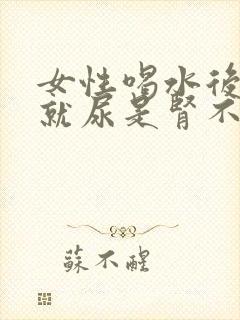 女性喝水後
就尿是腎不
蘇不醒